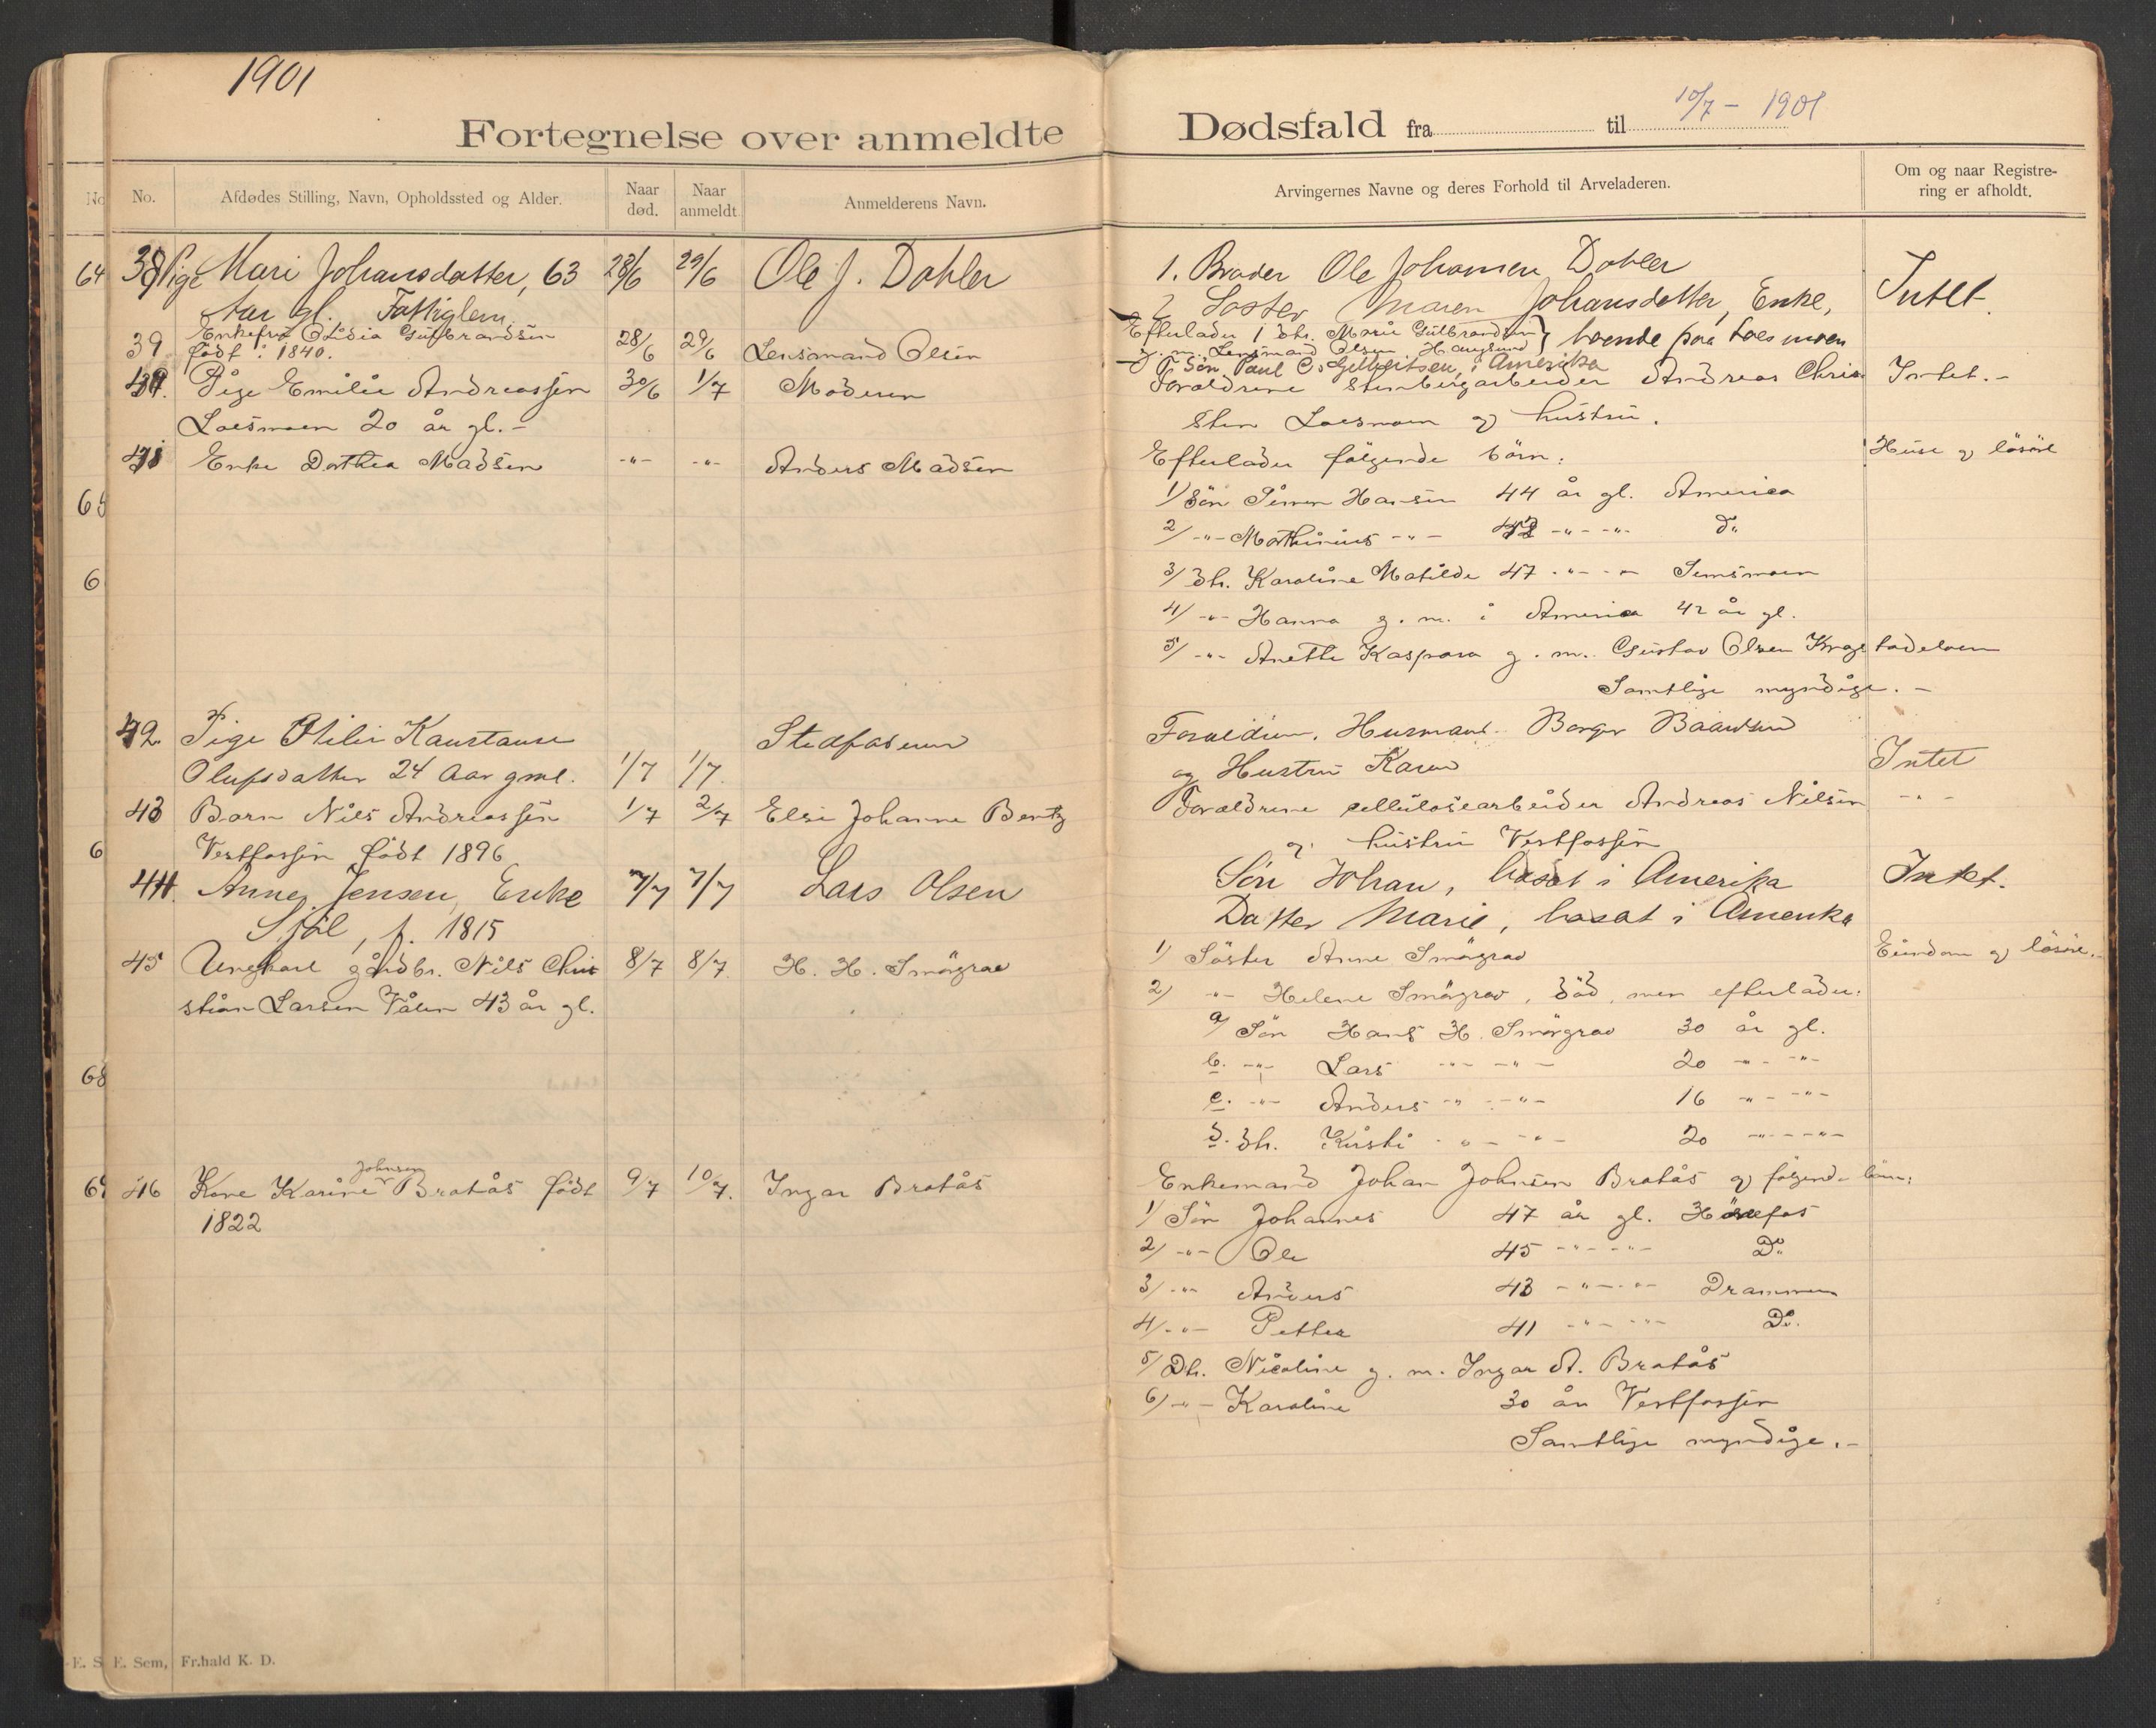 1901
Fortegnelse over anmeldte
No.
Afdødes Stilling, Navn, Opholdssted og Alder.
Naar død.
Naar anmeldt.
Anmelderens Navn.
38 Pige Mari Johansdatter, 63 28/6 29/6 Ole J. Dahler
Aar gl. Fattiglem.
39 Enkefru Gulbrandsen 28/6 29/6 Lensmand Olsen
født: 1840.
Pige Emilie Andreassen 30/6 1/7 Moderen
Loesmoen 20 år gl. -
Enke Dorthea Madsen -"- -"- Anders Madsen
42. Pige Otilie Konstanse Stedfaderen
Olufsdatter 24 Aar gml. 1/7 1/7.
43 Barn Nils Andreassen 1/7 2/7 Elsi Johanne Bentz
Vestfossen født 1896
44. Anne Jensen, Enke 7/7 7/7 Lars Olsen
f. 1815
45 Ungkarl gårdbr. Nils Chri 8/7 8/7 H. H. Smørgrav
stian Larsen Vålen 43 år gl.
Johnsen
46 Kone Karine Bratås født 9/7 10/7. Ingar Bratås
1822
64
6
6
68
E. Sem, Fr.hald K. D.
Dødsfald fra til 10/7 - 1901
Arvingernes Navne og deres Forhold til Arveladeren.
Om og naar Registre-
ring er afholdt.
1. Broder Ole Johansen Dahler
2 Søster Maren Johansdatter, Enke, Intet.
Efterlader 1 dtr. Marie Gulbrandsen
g. m. Lensmand Olsen Hauglund } boende paa Loesmoen
Søn Paul i Amerika
Forældrene Andreas Chris Intet. -
sten Loesmoen og hustru.
Efterlader følgende børn: Huse og løsøre
1/ Søn Simen Hansen 44 år gl. America
2/ -"- Mathinius -"- 42 -"- -"- Do
3/ Dtr. Karoline Matilde 47 -"- -"- Semsmoen
4/ -"- Hanna g. m. i America 42 år gl.
5/ -"- Anette Kaspara g. m. Gustav Olsen
Samtlige myndige. -
Forældrene, Husmand Borger Baardsen
og Hustru Karen Intet
Forældrene cellulosearbeider Andreas Nilsen -"-
og hustru Vestfossen
Søn Johan, bosat i Amerika Intet.
Datter Marie, bosat i Amerika
1/ Søster Anne Smørgrav Eiendom og løsøre. -
2/ -"- Helene Smørgrav, død, men efterlader:
a/ Søn Hans H. Smørgrav 30 år gl.
b. -"- Lars -"- -"- 20 -"- -"-
c. -"- Anders -"- -"- 16 -"- -"-
d. dtr. Kirsti -"- -"- 20 -"- -"-
Enkemand Johan Johnsen Bratås og følgende børn:
1/ Søn Johannes 47 år gl. Hønefos
2/ -"- Ole 45 -"- -"- Do
3/ -"- Anders 43 -"- -"- Drammen
4/ -"- Petter 41 -"- -"- Do.
5/ Dtr. Nicoline g. m. Ingar A. Bratås
6/ -"- Karoline 30 år Vestfossen
Samtlige myndige. -